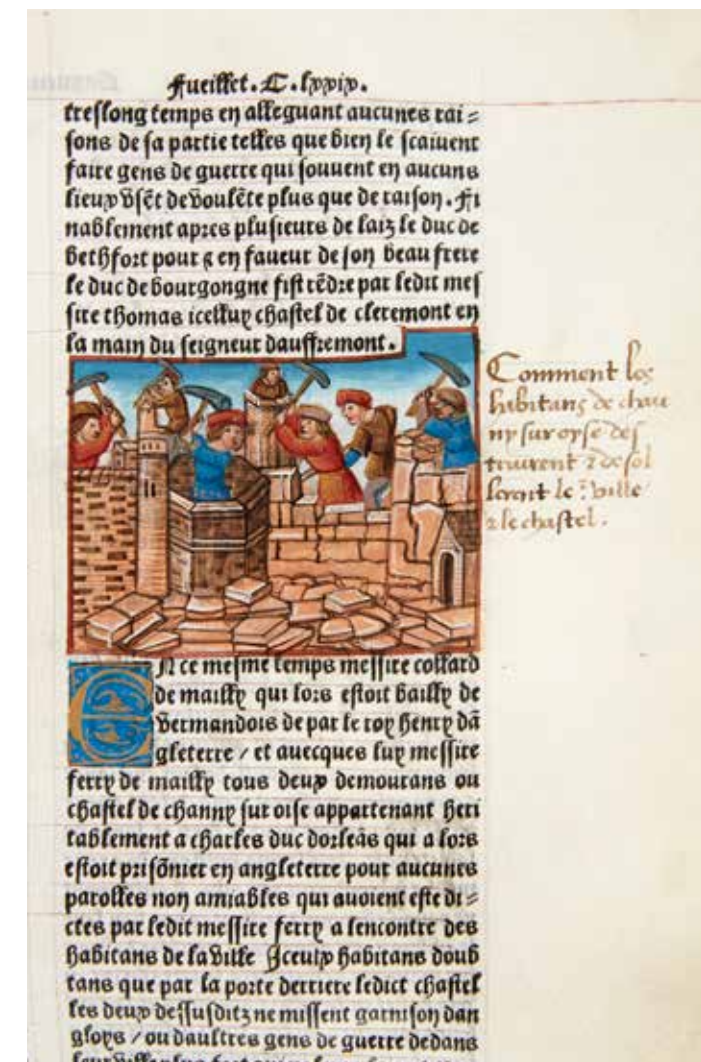 Fueillet. C. lxxix.
treslong temps en alleguant aucunes rai⸗
sons de sa partie telles que bien le scaiuent
faire gens de guerre qui souuent en aucuns
lieux vsẽt de voulẽte plus que de raison. Fi
nablement apres plusieurs delaiz le duc de
Bethfort pour ⁊ en faueur de son beau frere
le duc de bourgongne fist rẽdre par ledit mes
sire thomas icelluy chastel de cleremont en
la main du seigneur dauffremont.
Comment les
habitans de chau
ny sur oyse des
truirent ⁊ desol
lerent le
ville
⁊ le chastel.
EN ce mesme temps messire collard
de mailly qui lors estoit bailly de
Vermandois de par le roy henry dã
gleterre / et auecques luy messire
ferry de mailly tous deux demourans ou
chastel de channy sur oise appartenant heri
tablement a charles duc dorleãs qui a lors
estoit prisõnier en angleterre pour aucunes
parolles non amiables qui auoient este di⸗
ctes par ledit messire ferry a lencontre des
habitans de la ville Iceulx habitans doub
tans que par la porte derriere ledict chastel
les deux dessusditz ne missent garnison dan
gloys / ou daultres gens de guerre dedans
leur ville